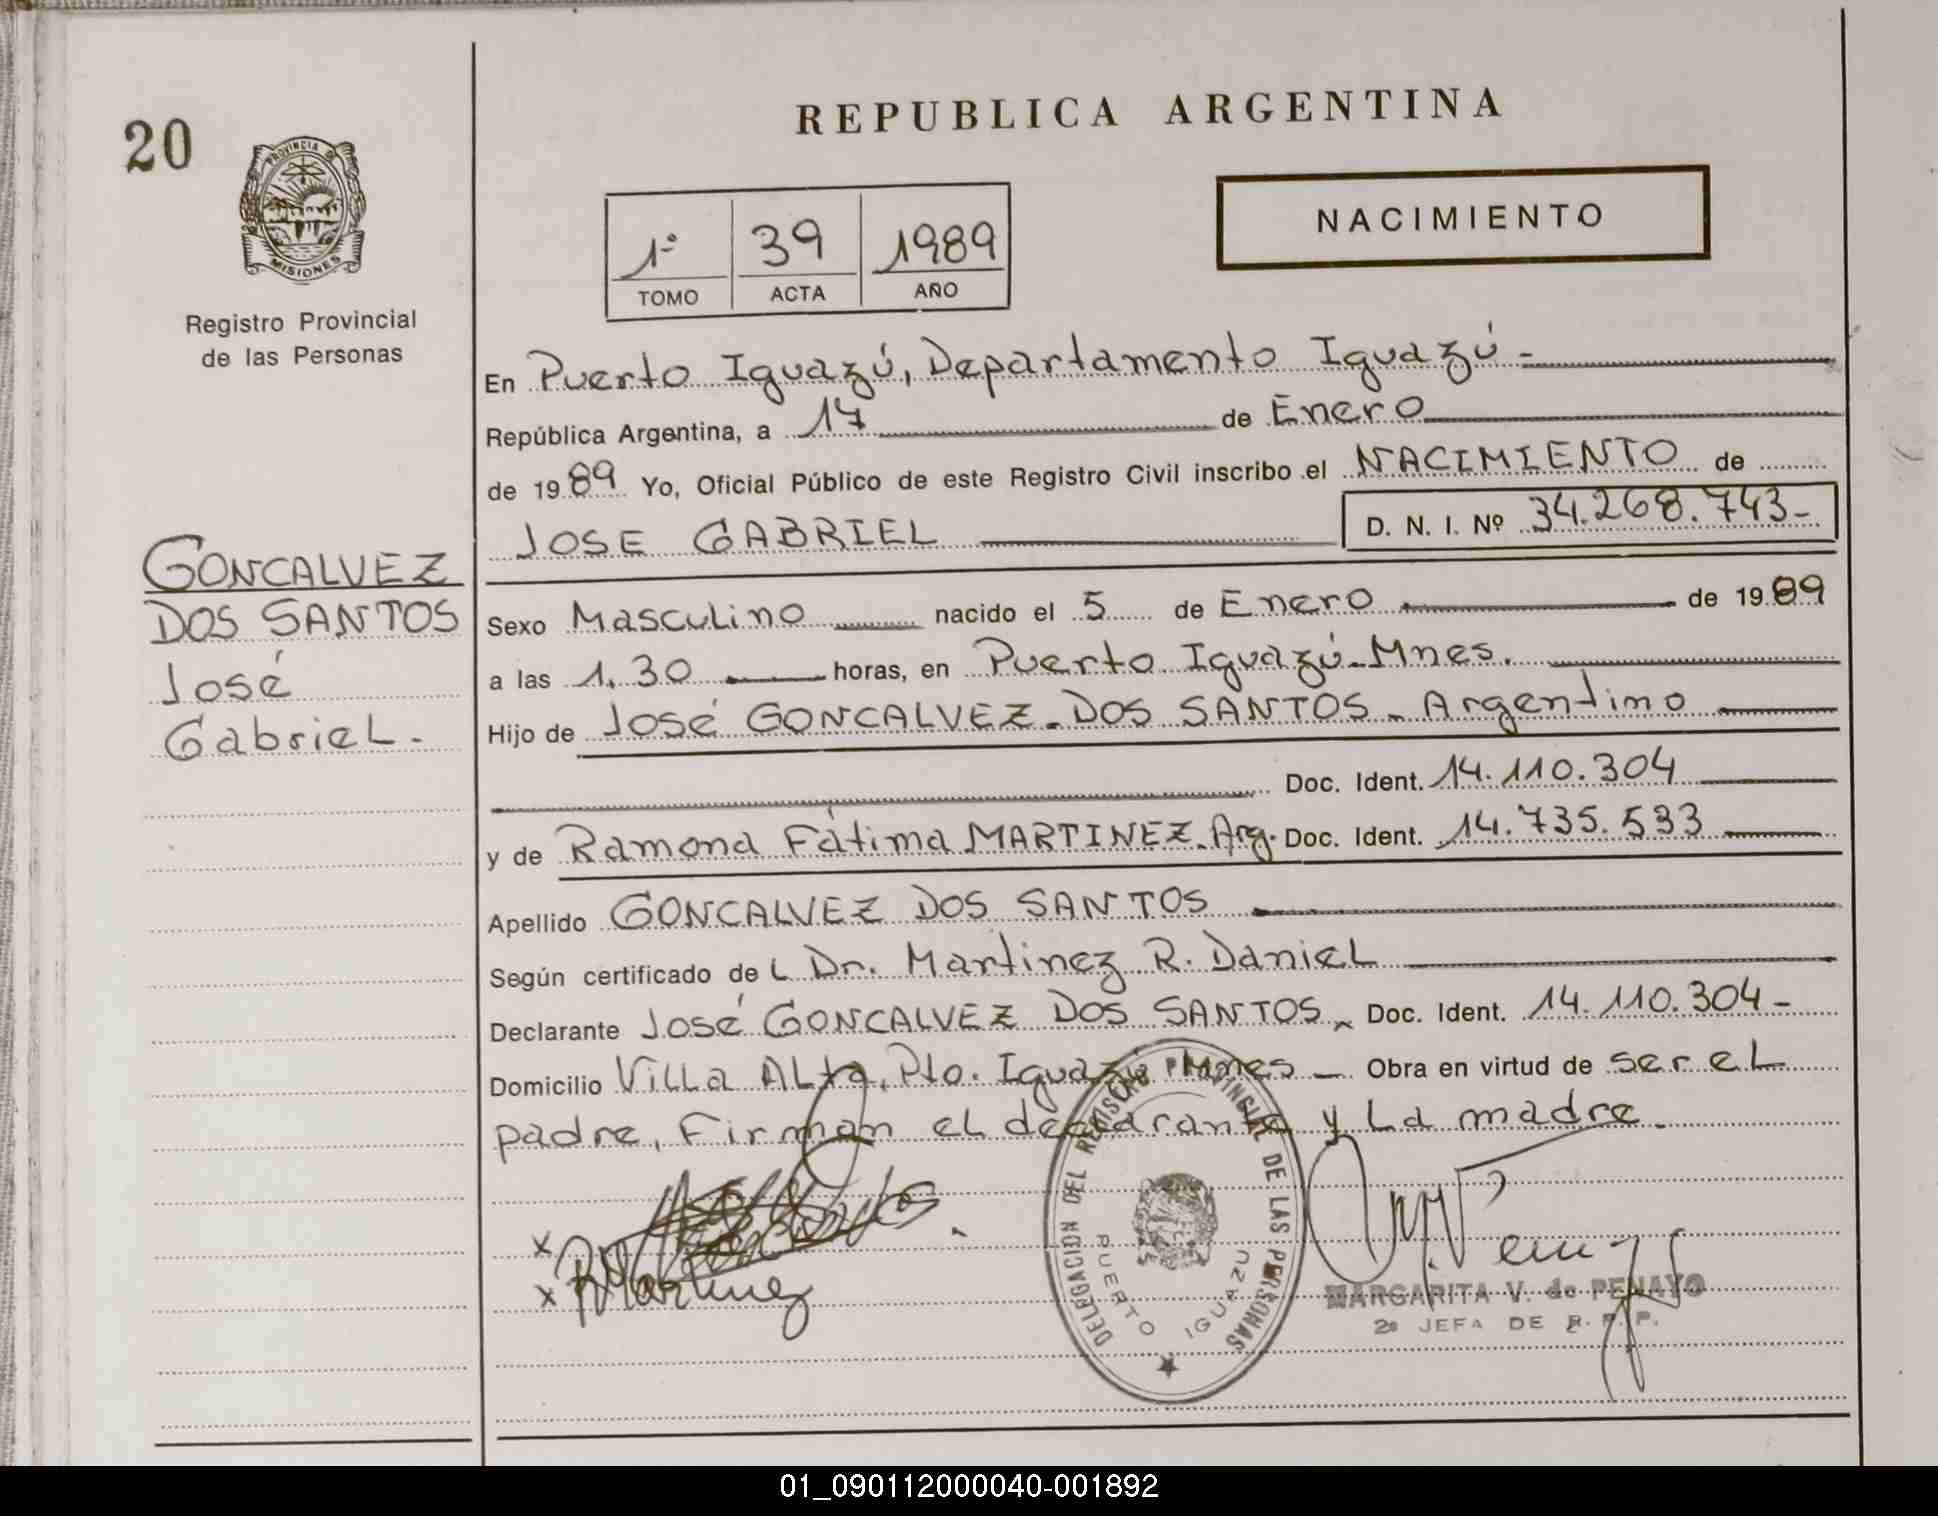 20
PROVINCIA DE
MISIONES
Registro Provincial
de las Personas
GONCALVEZ
DOS SANTOS
José
Gabriel.
REPUBLICA ARGENTINA
1º 39 1989
TOMO ACTA AÑO
NACIMIENTO
En Puerto Iguazú, Departamento Iguazú -
República Argentina, a 17 de Enero
de 1989 Yo, Oficial Público de este Registro Civil inscribo el NACIMIENTO de
JOSE GABRIEL D. N. I. Nº 34.268.743-
Sexo Masculino nacido el 5 de Enero de 1989
a las 1.30 horas, en Puerto Iguazú-Mnes.
Hijo de José GONCALVEZ-DOS SANTOS - Argentino
Doc. Ident. 14.110.304
y de Ramona Fátima MARTINEZ-Arg. Doc. Ident. 14.735.533
Apellido GONCALVEZ DOS SANTOS
Según certificado del Dr. Martinez R. Daniel
Declarante José GONCALVEZ DOS SANTOS - Doc. Ident. 14.110.304-
Domicilio Villa Alta, Pto. Iguazú Mnes - Obra en virtud de ser el
padre, Firman el declarante y la madre.
x
x RMartinez
DELEGACION DEL REGISTRO PROVINCIAL DE LAS PERSONAS
PUERTO IGUAZU
MARGARITA V. de PENAYO
2ª JEFA DE R. P. P.
01_090112000040-001892